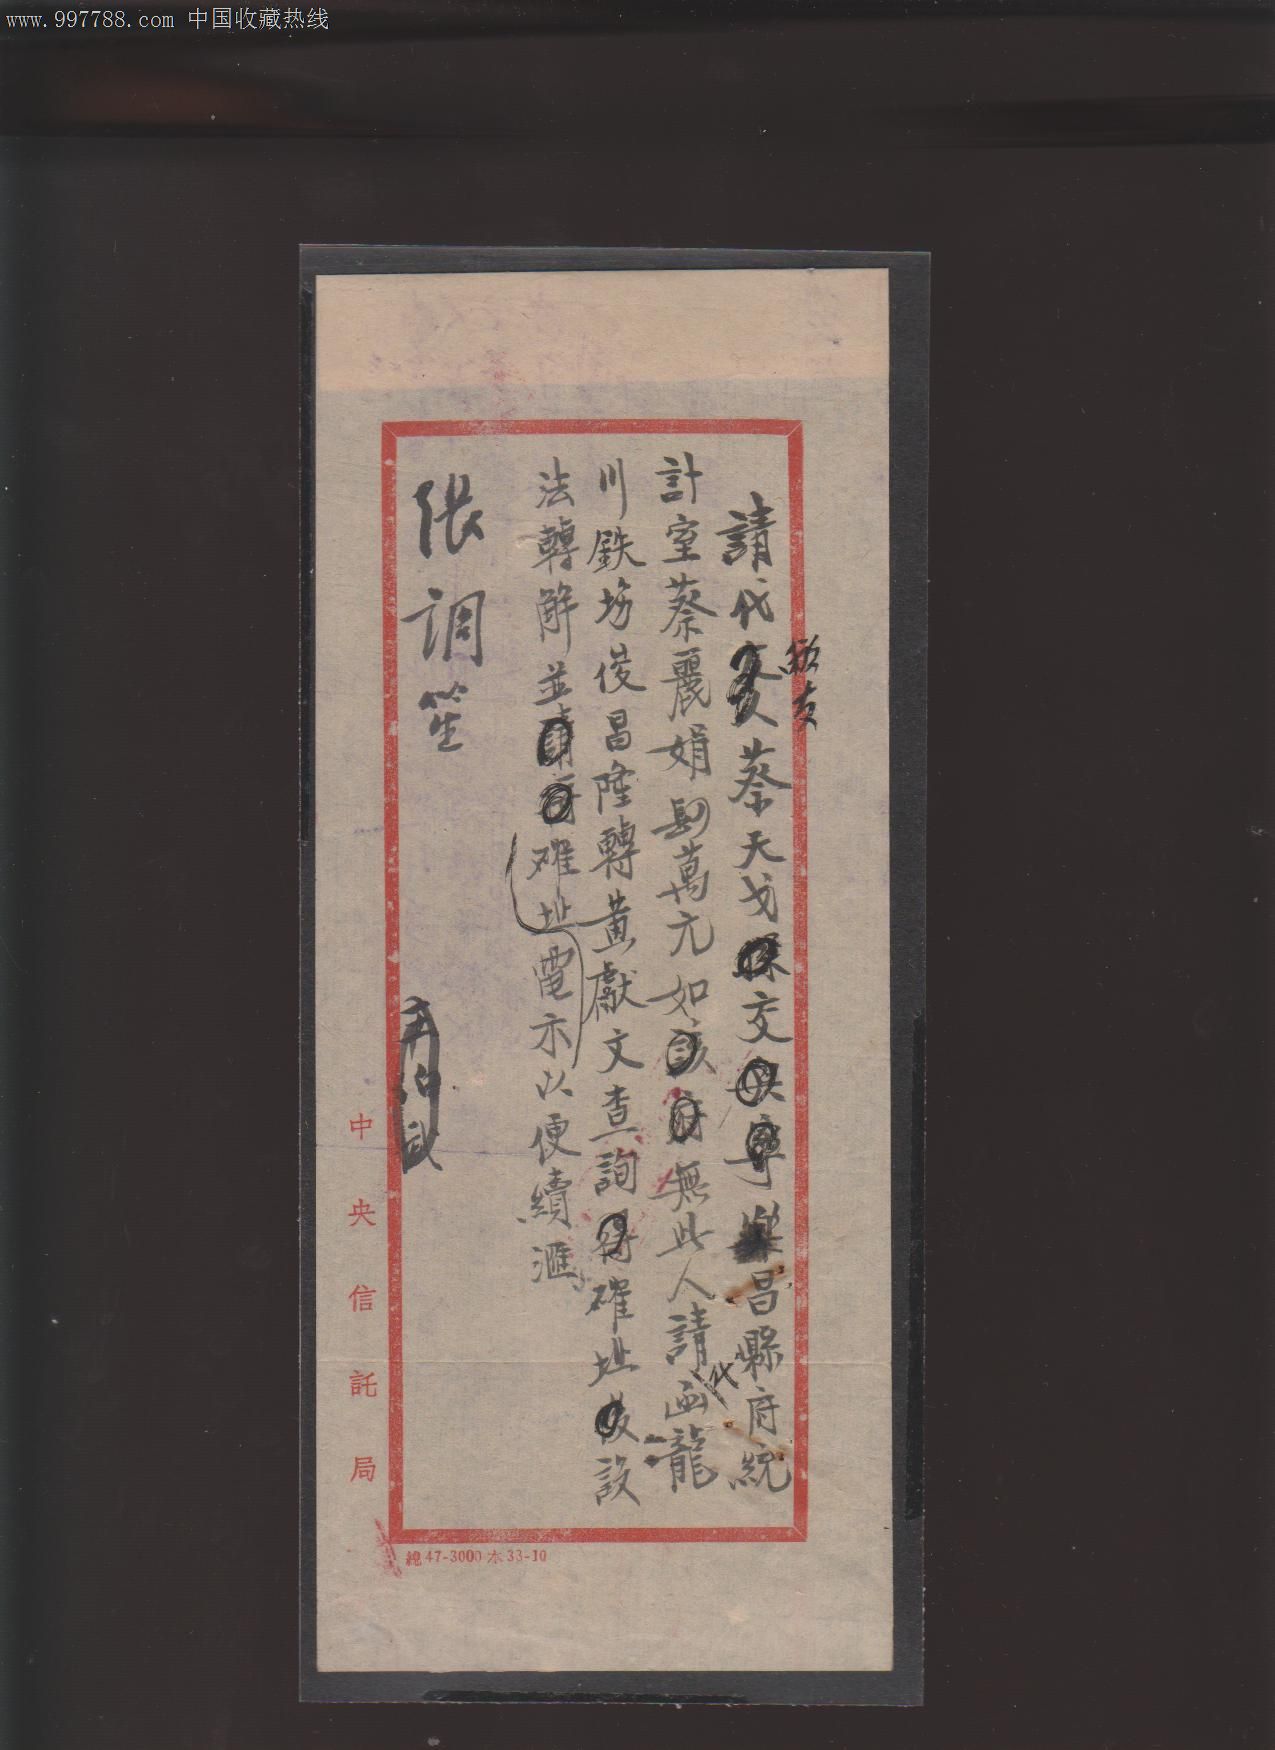 www.997788.com 中国收藏热线
請代蔡天戈交樂昌縣府統
計室蔡麗娟萬元如無此人請代函龍
川鉄场俊昌隆轉黄獻文查詢確址設
法轉解並確址電示以便續滙
張調笙
中央信託局
總47-3000本33-10